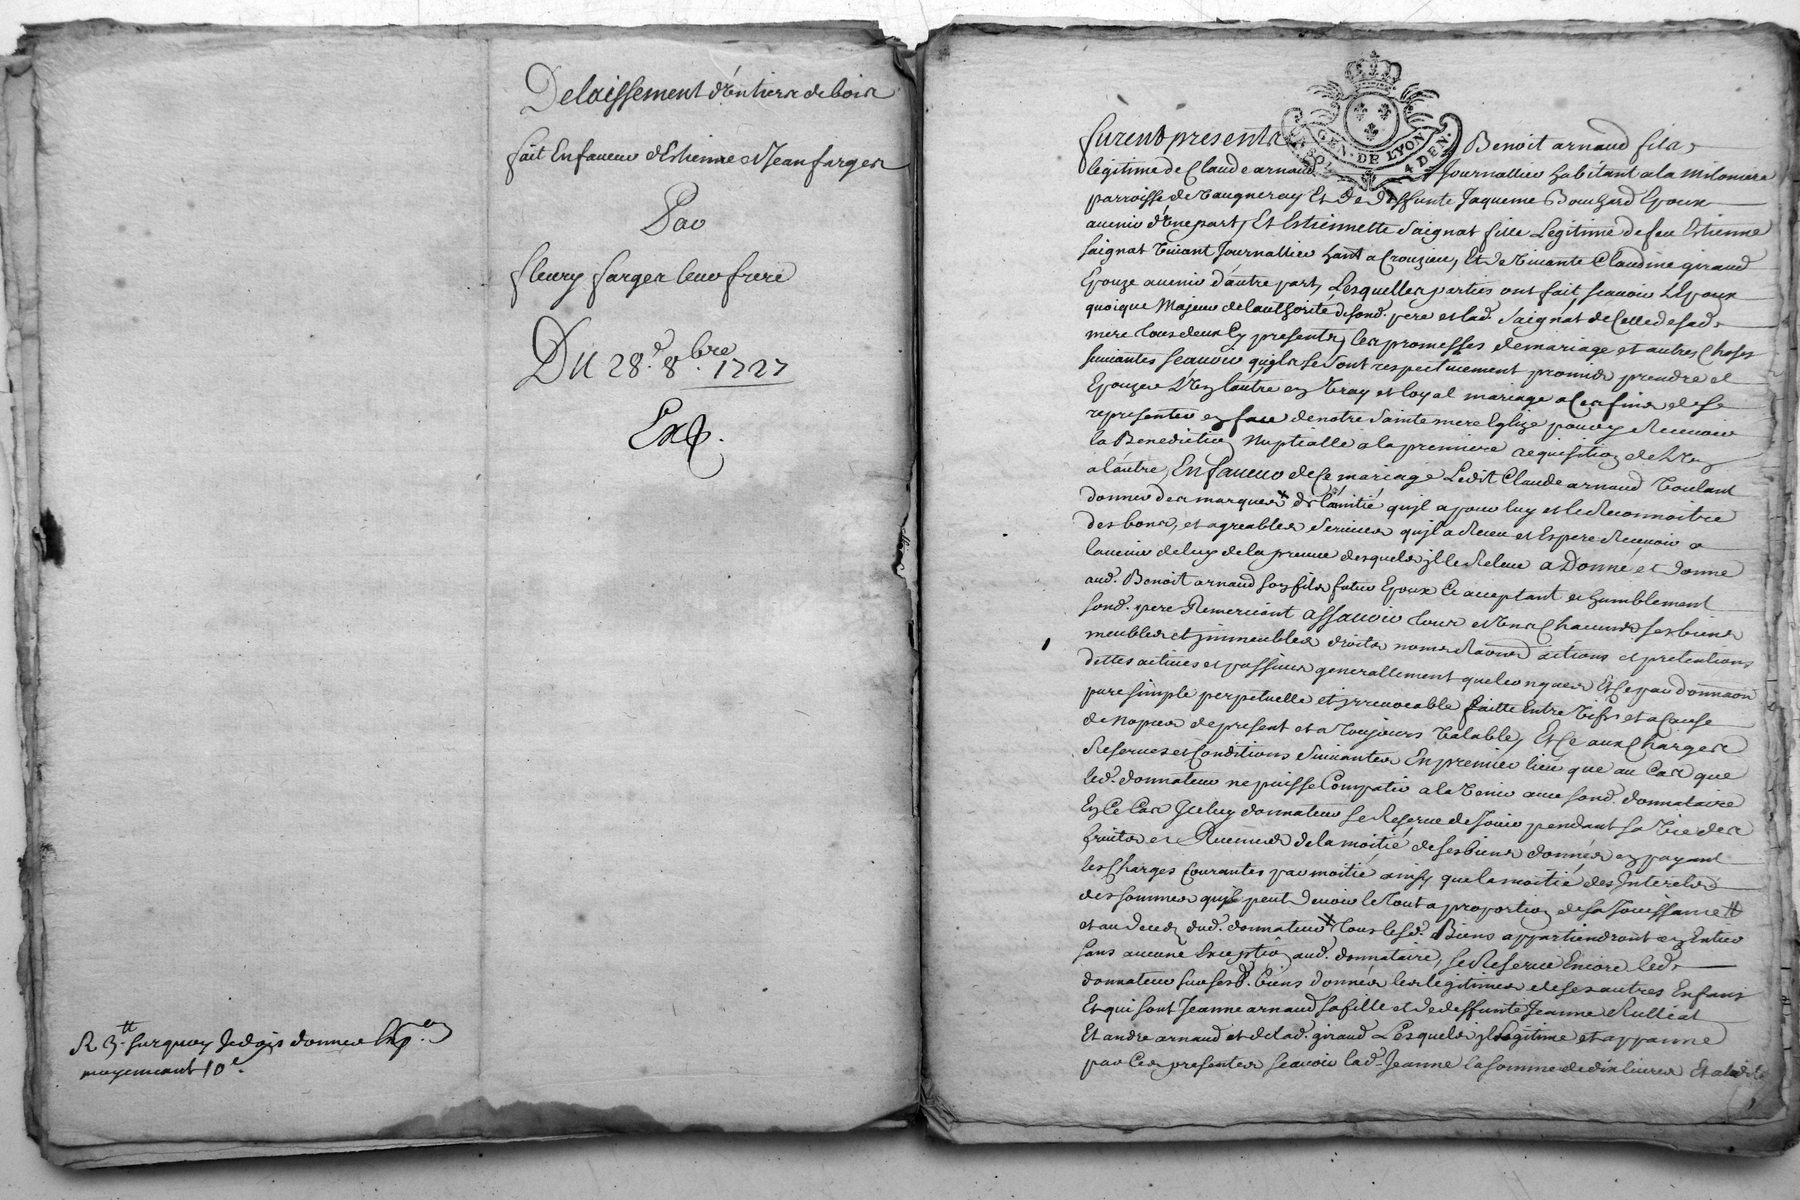 Delaissement d'entiere de bois
fait En faveur d'Estienne & Jean farges
Par
fleury farges leur frere
Du 28.e 8.bre 1727
Exp.
R 3.tt surquoy Jedois donner Exp.on
moyennant 10 s.
GEN. DE LYON
4 DEN.
furent presents Benoit arnaud fils
legitime de Claude arnaud Journallier habitant a la Miloniere
parroisse de Vaugneray Et de deffunte Jaqueme Bouchard Epoux
avenir d'une part, Et Estiennette Saignat fille Legitime de feu Estienne
Saignat vivant Journallier hant a Crouzieu, Et de vivante Claudine giraud
Epouze avenir d'autre part, Lesquelles parties ont fait scavoir LEpoux
quoique Majeur de l'authorité de sond. pere et lad. Saignat de Celle de sad.
mere tous deux Cy presents, les promesses de mariage et autres Choses
suivantes scavoir quyls se sont respectivement promis prendre et
Epouzer L'un lautre en vray et loyal mariage a Ces fins de se
representer en face de notre Sainte mere Eglize pour y Recevoir
la Benediction Nuptialle a la premiere requisition de L'un
a l'autre, En faveur de Ce mariage Ledit Claude arnaud voulant
donner des marques de l'amitié quyl a pour luy et le Reconnoitre
des bons, et agreables services quyl a Receu et Espere Recevoir a
lavenir de luy de la preuve desquels yl le Releve a Donné et donne
aud. Benoit arnaud son fils futur Epoux Ce acceptant et humblement
sond. pere Remerciant assavoir tous et uns Chacuns ses biens
meubles et ymmeubles droits noms Raisons actions et pretentions
dettes actives et passives generallement quelconques Et Ce par donnaon
pure simple perpetuelle et yrrevocable faitte Entre vifs et a Cause
de Nopces de present et a toujours valable, Et Ce aux Charges
Reserves et Conditions Suivantes En premier lieu que au Cas que
led. donnateur ne puisse Compatir a la venir avec sond. donnataire
En Ce Cas Yceluy donnateur se Reserve de Jouir pendant sa vie des
fruits et Revenus de la moitié de ses biens donnés en payant
les Charges Courantes par moitié ainsy que la moitié des Interets
des sommes quyl peut devoir le tout a proportion de sa Jouissance #
et au deced dud. donnateur # tous lesd. Biens appartiendront en Entier
sans aucune Exception aud. donnataire, se Reserve Encore led.
donnateur sur sesd. biens donnés les legitimes de ses autres Enfans
Et qui sont Jeanne arnaud sa fille et de deffunte Jeanne Rulliat
Et andré arnaud et de lad. giraud Lesquels yl Legitime et appanne
par Ces presentes scavoir lad. Jeanne la somme de dix livres Et